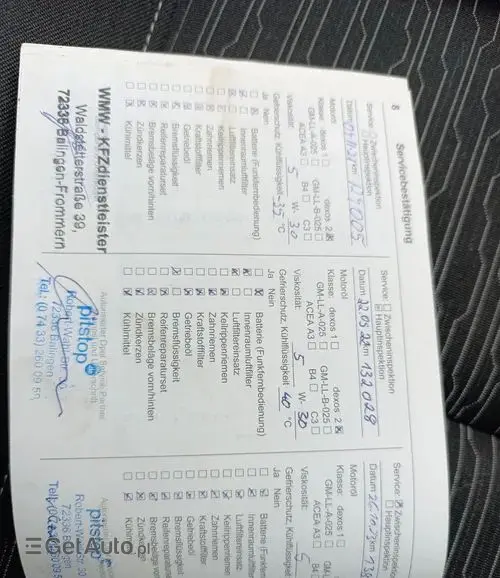 8 Servicebestätigung
Service: ☐ Zwischeninspektion
☐ Hauptinspektion
Datum km 129005
Motoröl
Klasse: dexos 1 ☐ dexos 2 ☒
GM-LL-A-025 ☐ GM-LL-B-025 ☐
ACEA A3 ☐ B4 ☐ C3 ☐
Viskosität: 5 W- 30
Gefrierschutz, Kühlflüssigkeit -35 °C
Ja Nein
Batterie (Funkfernbedienung)
Innenraumluftfilter
Luftfiltereinsatz
Keilrippenriemen
Zahnriemen
Kraftstofffilter
Getriebeöl
Bremsflüssigkeit
Reifenreparaturset
Bremsbeläge vorn/hinten
Zündkerzen
Kühlmittel
WMW - KFZdienstleister
Waldstetterstraße 39,
72336 Balingen-Frommern
Service: ☐ Zwischeninspektion
☒ Hauptinspektion
Datum 22.05.22 km 132028
Motoröl
Klasse: dexos 1 ☐ dexos 2 ☒
GM-LL-A-025 ☐ GM-LL-B-025 ☐
ACEA A3 ☐ B4 ☐ C3 ☐
Viskosität: 5 W- 30
Gefrierschutz, Kühlflüssigkeit 40 °C
Ja Nein
Batterie (Funkfernbedienung)
Innenraumluftfilter
Luftfiltereinsatz
Keilrippenriemen
Zahnriemen
Kraftstofffilter
Getriebeöl
Bremsflüssigkeit
Reifenreparaturset
Bremsbeläge vorn/hinten
Zündkerzen
Kühlmittel
pitstop
72336 Balingen
Tel.: (0 74 33) 260 09 50
Service: ☒ Zwischeninspektion
☐ Hauptinspektion
Datum km
Motoröl
Klasse: dexos 1 ☐
GM-LL-A-025 ☐
ACEA A3 ☐
Viskosität: 5
Gefrierschutz, Kühlflüssigkeit
Ja Nein
Batterie
Innenraumluftfilter
Luftfiltereinsatz
Keilrippenriemen
Zahnriemen
Kraftstofffilter
Getriebeöl
Bremsflüssigkeit
Bremsbeläge
Zündkerzen
Kühlmittel
pitstop
72336 Balingen
GetAuto.pl